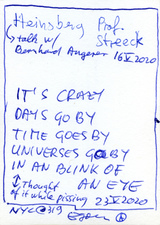 Heinsberg Prof.
Streeck
talk w/
Bernhard Angerer 16 V 2020
IT'S CRAZY
DAYS GO BY
TIME GOES BY
UNIVERSES GO BY
IN AN BLINK OF
AN EYE
↑ Thought
of it while pissing 23 V 2020
NYC@319